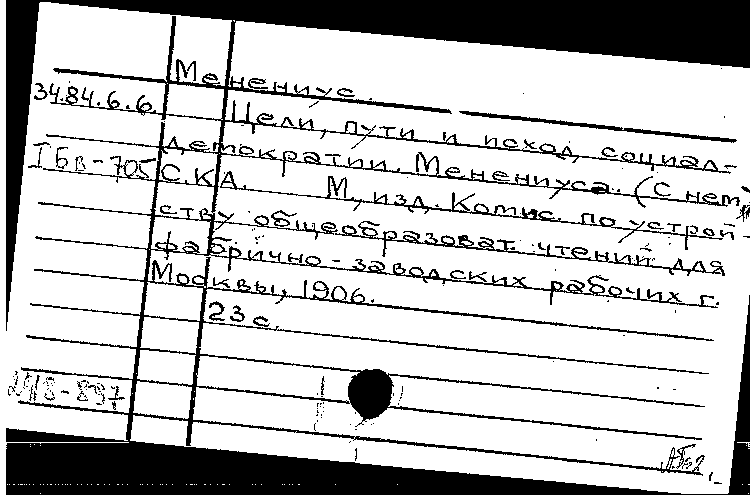 Менениус.
34.84.6.6. Цели, пути и исход социал-
демократии. Менениуса. (С нем.)
IБв-705 С.К.А. М, изд. Комис. по устрой-
ству общеобразоват. чтений для
фабрично-заводских рабочих г.
Москвы, 1906.
23 с.